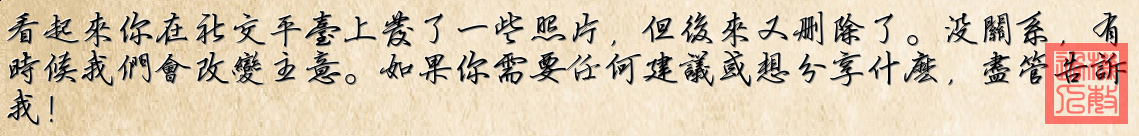 看起來你在社交平臺上發了一些照片，但後來又刪除了。没關系，有
時候我們會改變主意。如果你需要任何建議或想分享什麽，盡管告訴
我！